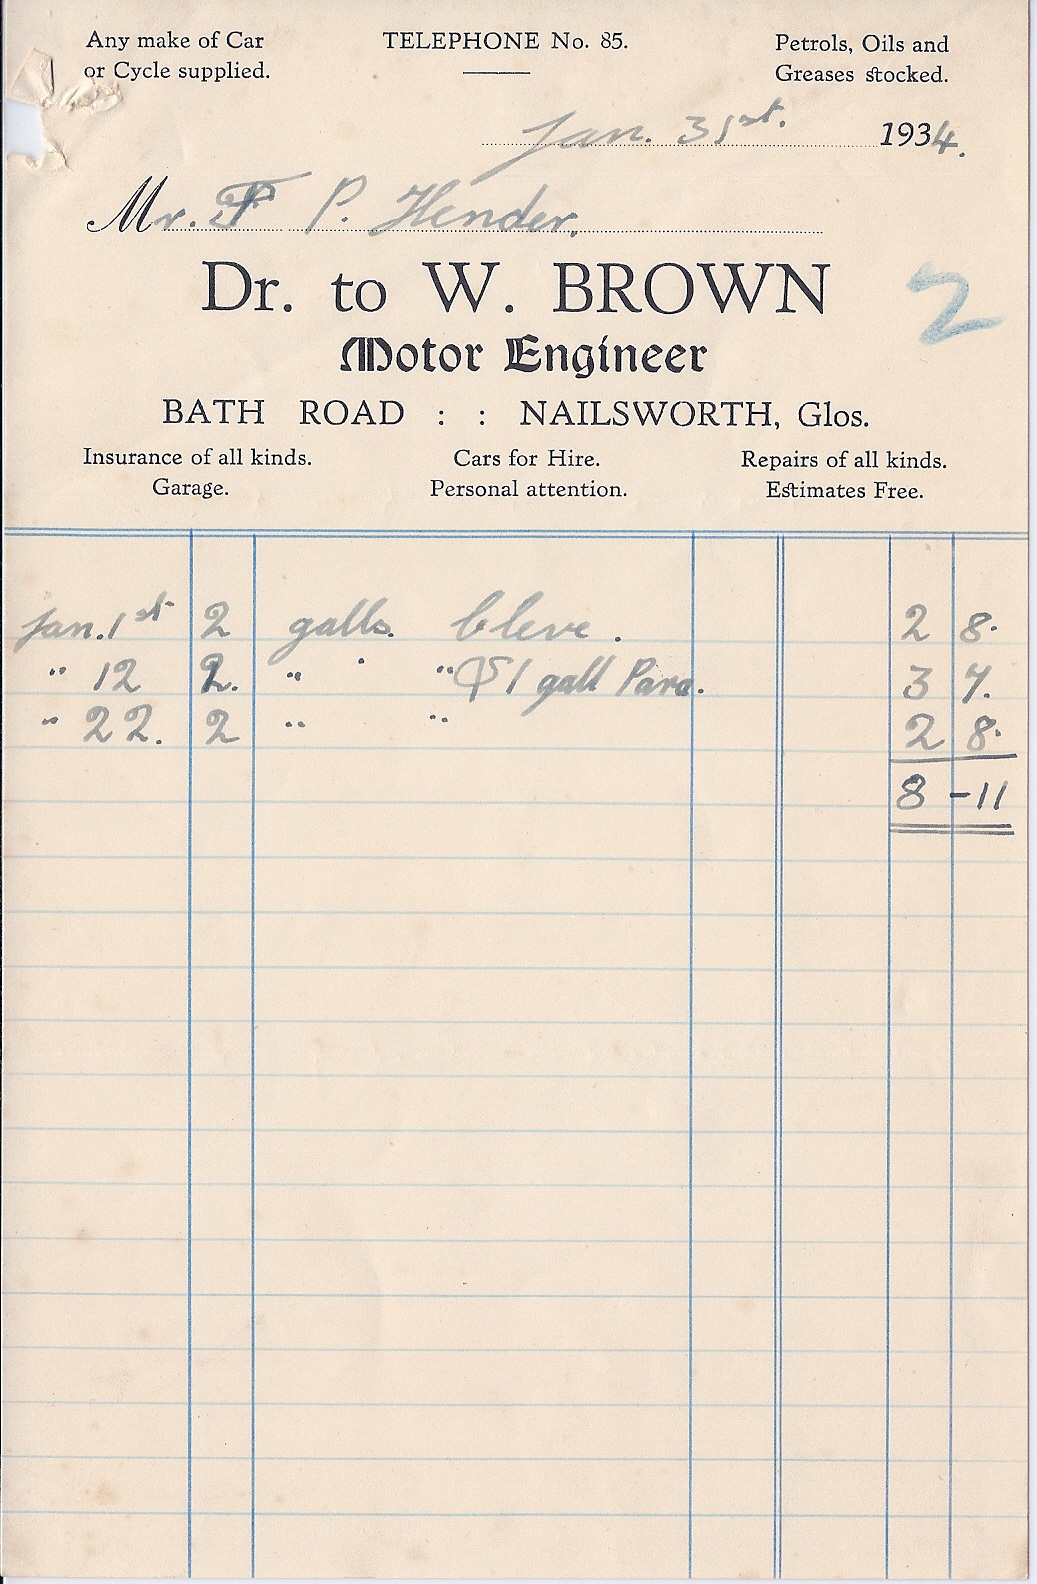 Any make of Car
or Cycle supplied.
TELEPHONE No. 85.
Petrols, Oils and
Greases stocked.
Jan. 31st. 1934.
Mr. F P. Hender.
Dr. to W. BROWN
2
Motor Engineer
BATH ROAD : : NAILSWORTH, Glos.
Insurance of all kinds.
Garage.
Cars for Hire.
Personal attention.
Repairs of all kinds.
Estimates Free.
Jan. 1st 2 galls. Cleve. 2 8.
" 12 2. " " & 1 gall Para. 3 7.
" 22. 2 " " 2 8.
8 - 11